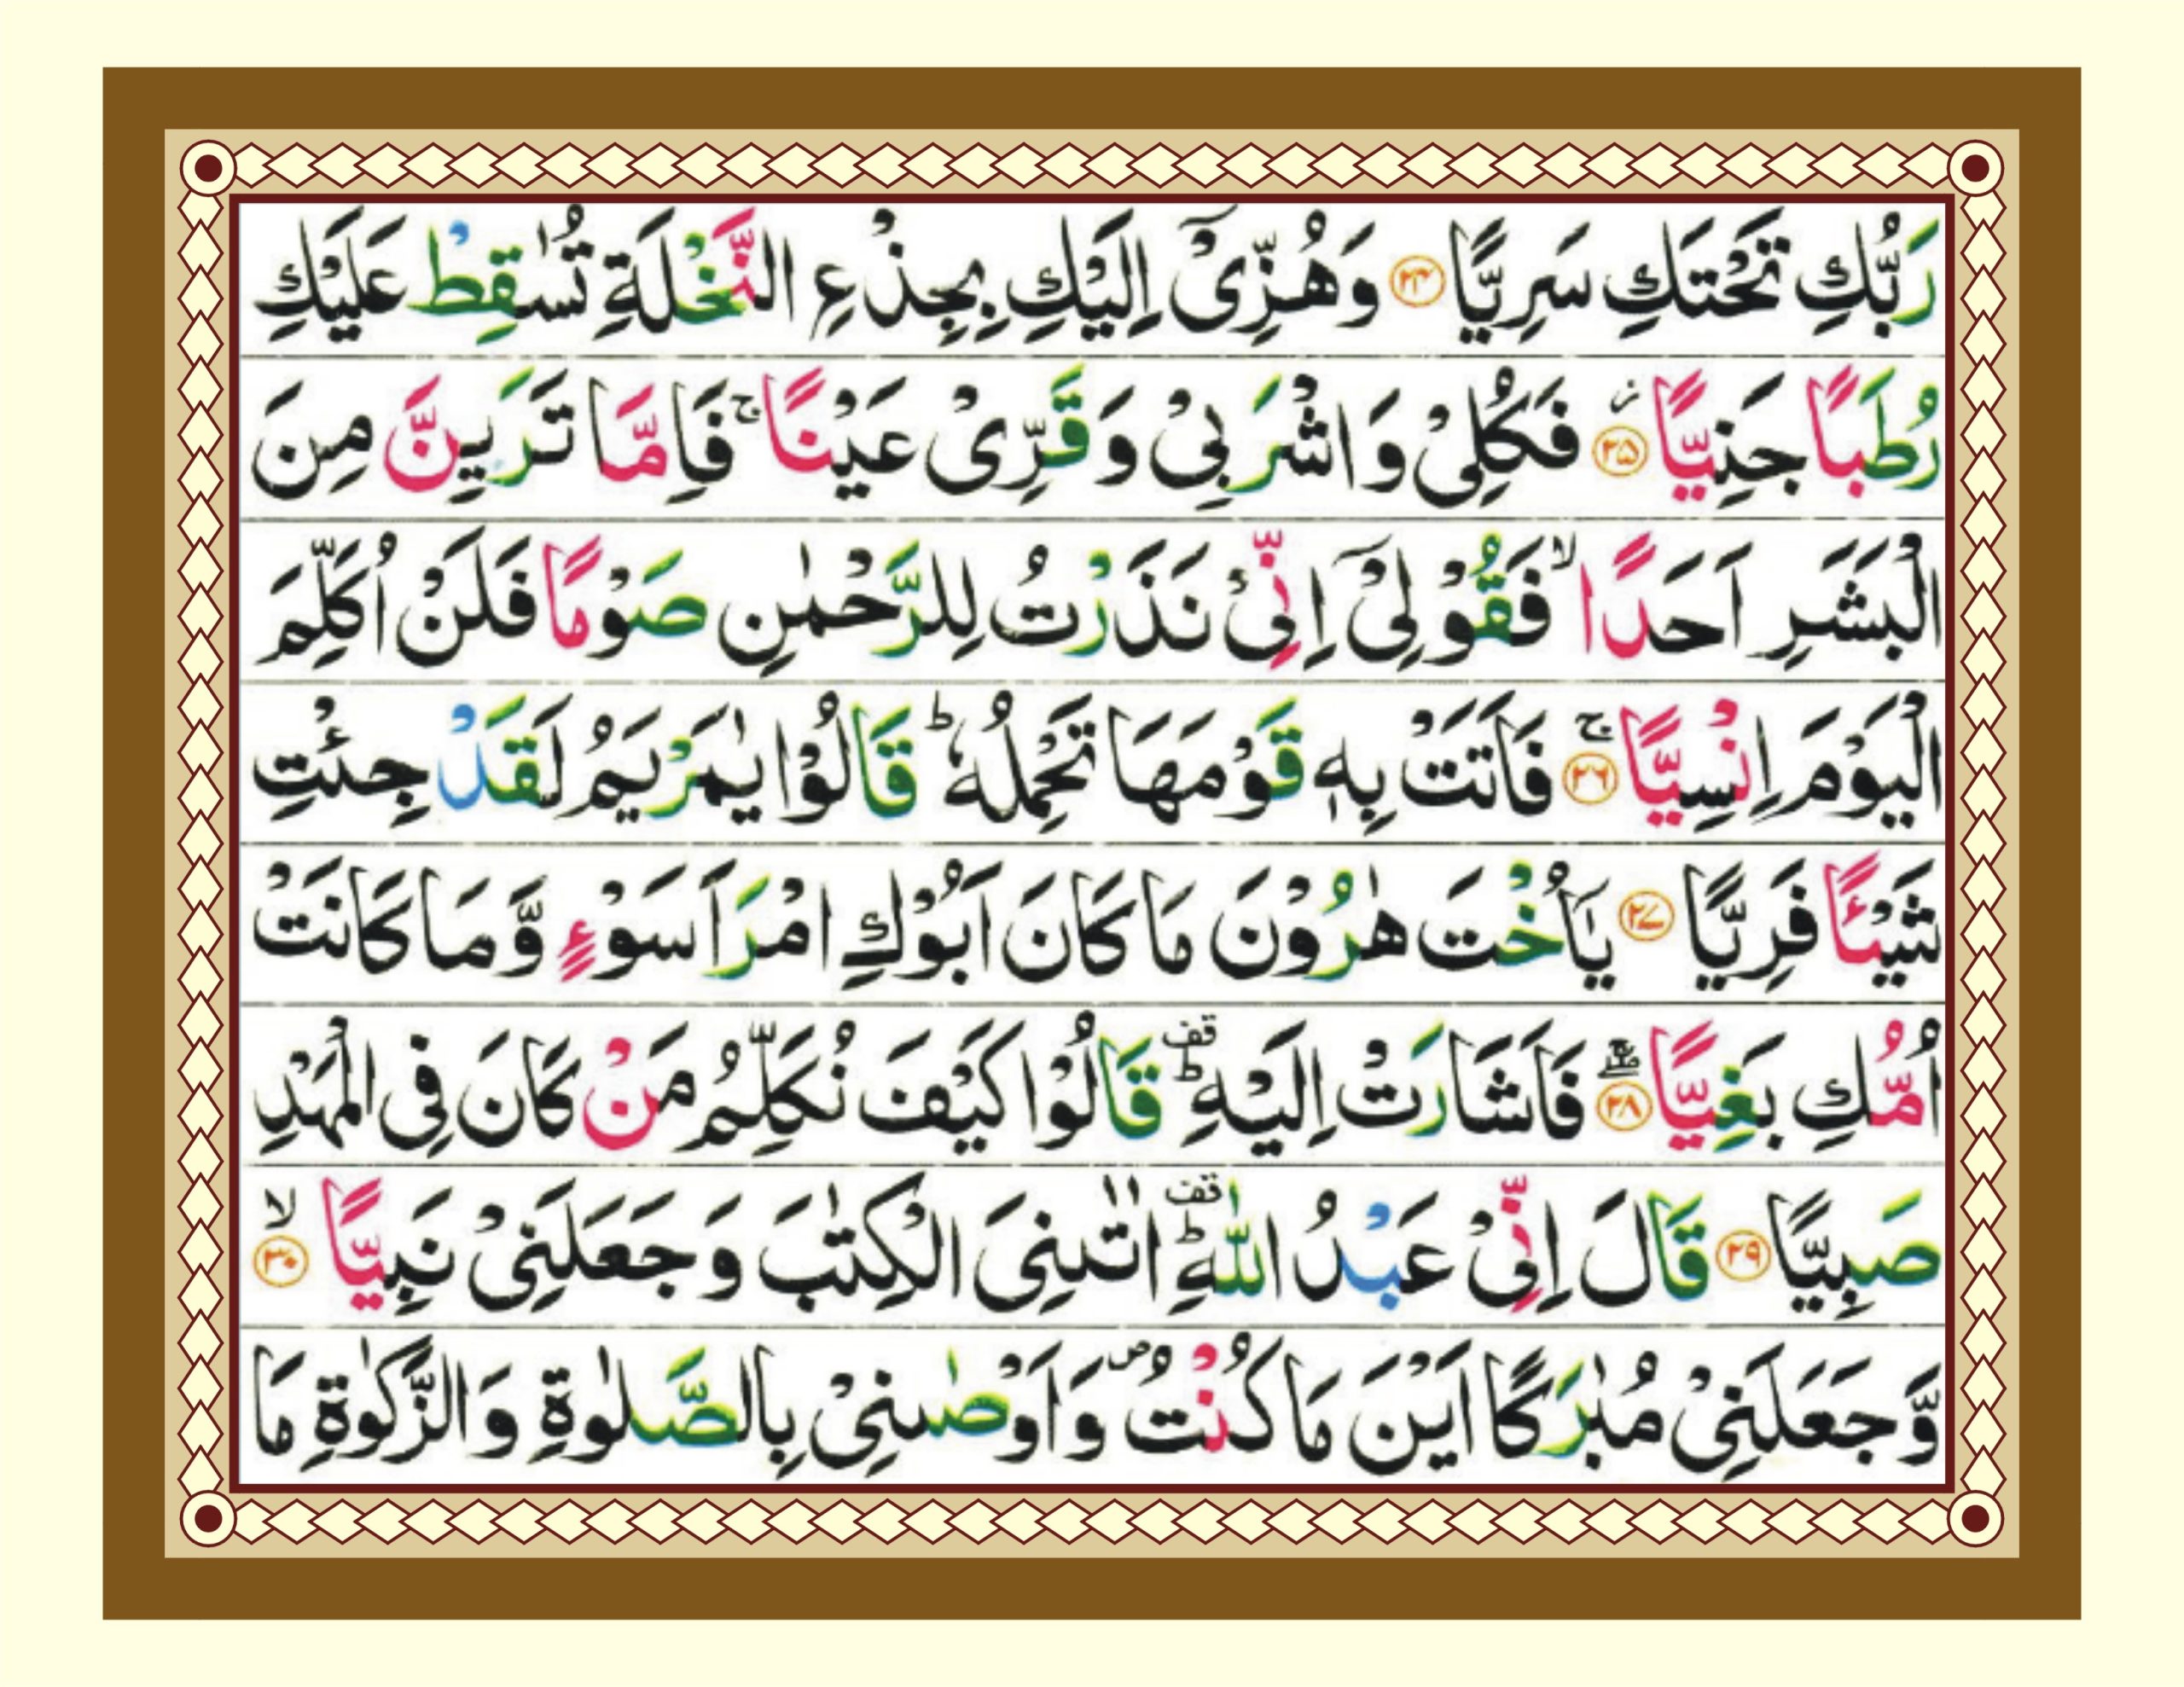 رَبُّكِ تَحْتَكِ سَرِيًّا ﴿۲۴﴾ وَهُزِّیْۤ اِلَیْكِ بِجِذْعِ النَّخْلَةِ تُسٰقِطْ عَلَیْكِ
رُطَبًا جَنِیًّا ﴿۲۵﴾ؗ فَكُلِیْ وَاشْرَبِیْ وَقَرِّیْ عَیْنًا ۚ فَاِمَّا تَرَیِنَّ مِنَ
الْبَشَرِ اَحَدًا ۙ فَقُوْلِیْۤ اِنِّیْ نَذَرْتُ لِلرَّحْمٰنِ صَوْمًا فَلَنْ اُكَلِّمَ
الْیَوْمَ اِنْسِیًّا ﴿۲۶﴾ۚ فَاَتَتْ بِهٖ قَوْمَهَا تَحْمِلُهٗ ؕ قَالُوْا یٰمَرْیَمُ لَقَدْ جِئْتِ
شَیْـًٔا فَرِیًّا ﴿۲۷﴾ یٰۤاُخْتَ هٰرُوْنَ مَا كَانَ اَبُوْكِ امْرَاَ سَوْءٍ وَّمَا كَانَتْ
اُمُّكِ بَغِیًّا ﴿۲۸﴾ۖۚ فَاَشَارَتْ اِلَیْهِ ؕ قف قَالُوْا كَیْفَ نُكَلِّمُ مَنْ كَانَ فِی الْمَهْدِ
صَبِیًّا ﴿۲۹﴾ قَالَ اِنِّیْ عَبْدُ اللّٰهِ ؕ قف اٰتٰىنِیَ الْكِتٰبَ وَجَعَلَنِیْ نَبِیًّا ﴿۳۰﴾ۙ
وَّجَعَلَنِیْ مُبٰرَكًا اَیْنَ مَا كُنْتُ ۪ وَاَوْصٰىنِیْ بِالصَّلٰوةِ وَالزَّكٰوةِ مَا